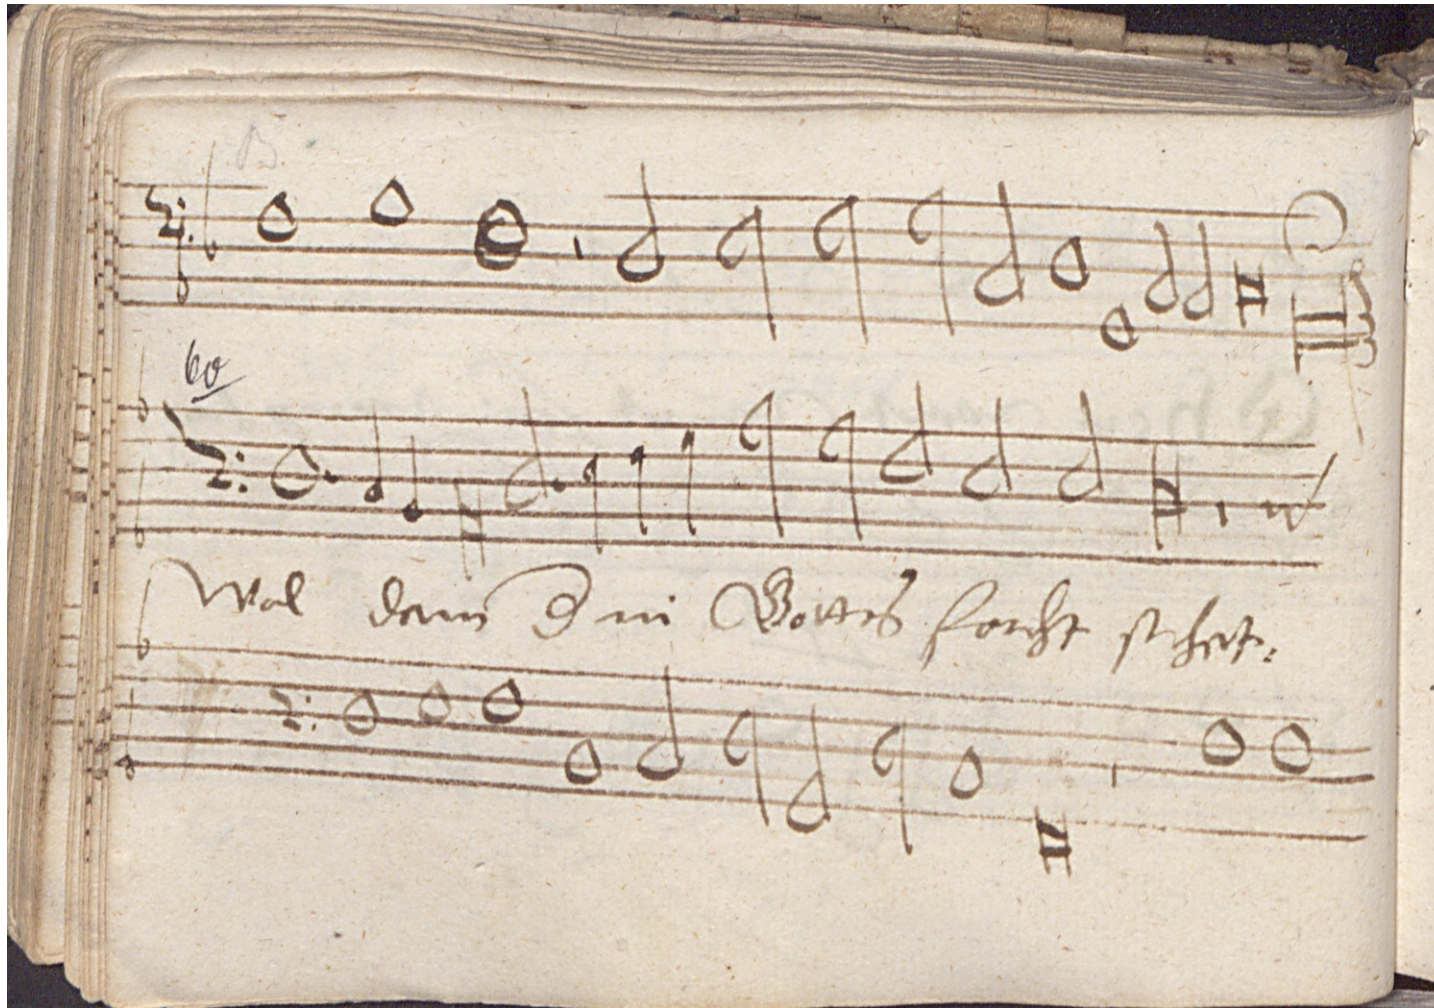 60
Wol dem d in Gottes forcht stehet: